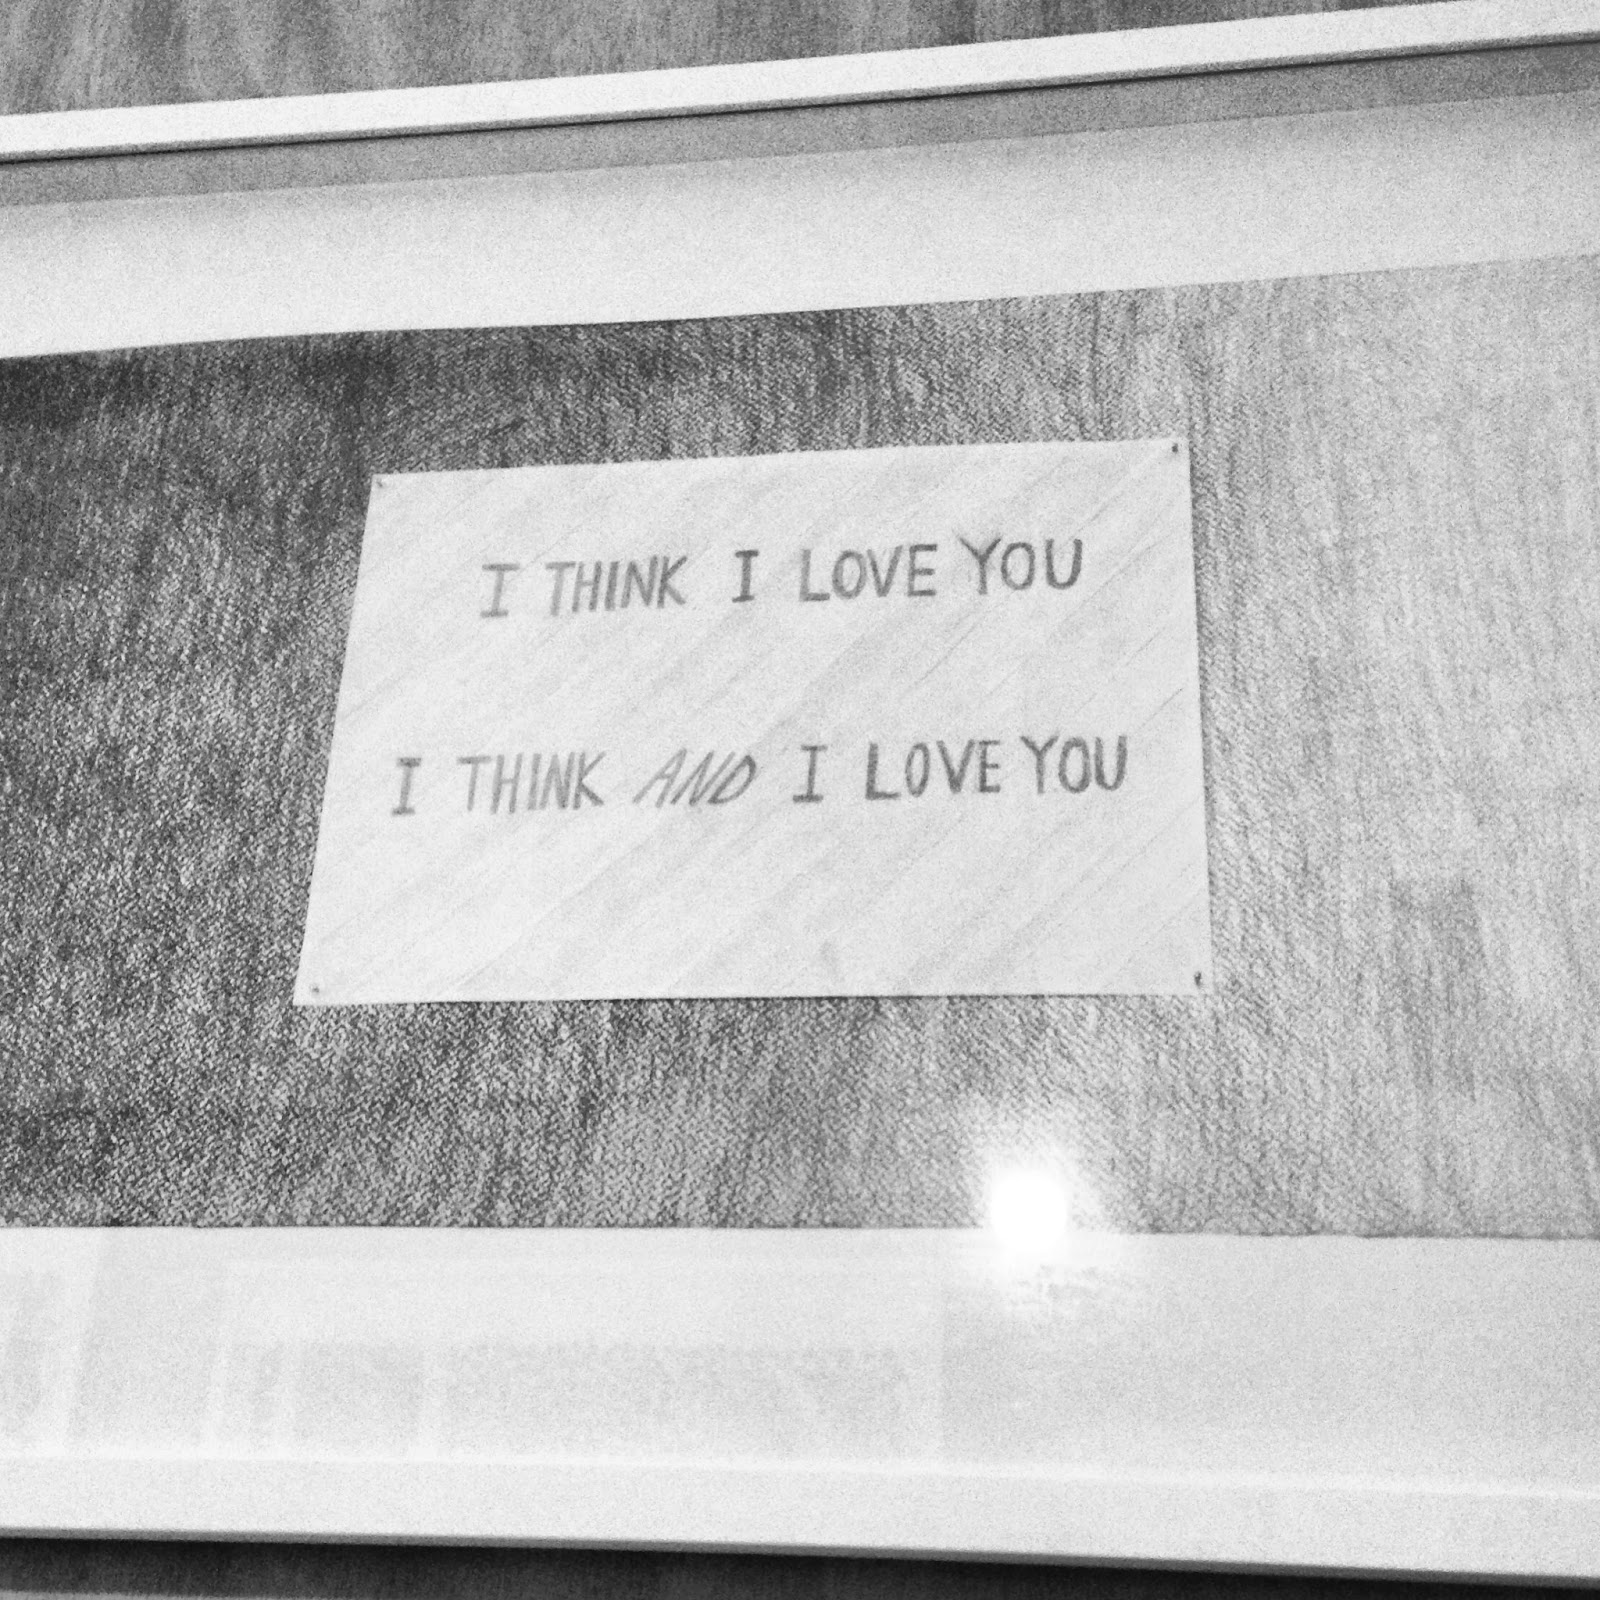 I THINK I LOVE YOU
I THINK AND I LOVE YOU